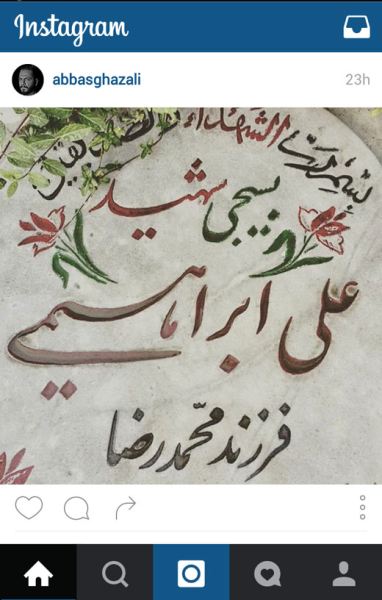 Instagram
abbasghazali
23h
بسم رب الشهداء والصدیقین
بسیجی شهید
علی ابراهیمی
فرزند محمدرضا